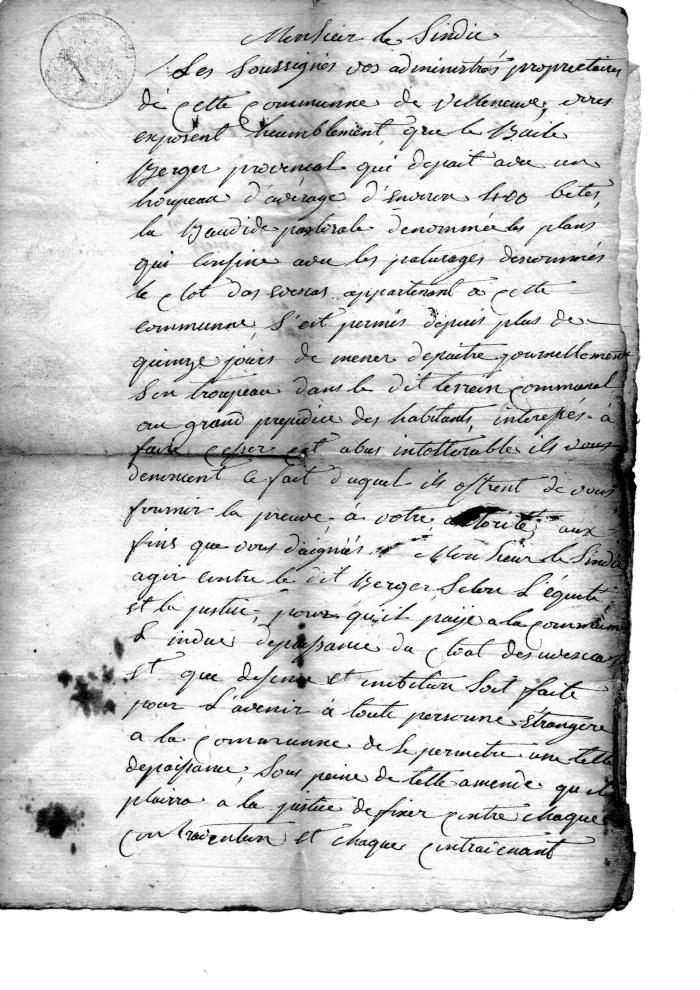 Monsieur le Sindic
Les Soussignés vos administrés proprietaires
de cette communne de villeneuve, vous
exposent humblement, que le Baile
Berger provincal qui depait avec un
troupeau d'avérage d'Environ 400 betes,
la Bandide pastorale denommée les plans
qui Confine avec les paturages denommés
le Clot das appartenant a cette
communne S'est permis depuis plus de
quinze jours de mener depaitre journellement
Son troupeau dans le dit terrein communal
au grand prejudice des habitants, interessés à
faire cesser cet abus intollerable ils vous
denoncent ce fait duquel ils offrent de vous
fournir la preuve, à votre autorité, aux
fins que vous daigniés Monsieur le Sindic
agir contre le dit Berger, Selon L'équité
et la justice, pour qu'il païe a la communne
L'indue depaissance du Clot
et que defense et inibition Soit faite
pour L'avenir à toute personne étrangere
a la communne de Se permetre une telle
depaissance, Sous peine de telle amende qu'il
plairra a la justice de fixer contre chaque
contravention et chaque contrevenant